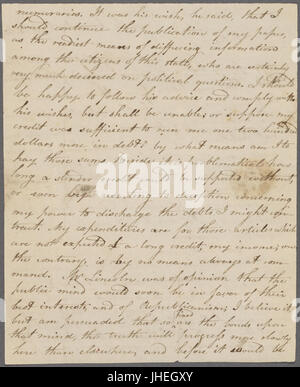 memoraries. It was his wish, he said, that I
should continue the publication of my paper,
as the readiest means of diffusing information
among the citizens of this state, who are certainly
very much deceived on political questions. I should
be happy to follow his advice and comply with
his wishes, but shall be unable; or suppose my
credit was sufficient to run me one two hundred
dollars more in debt? by what means am I to
pay these sums besides it is problematical how
long a slender credit could be supported without,
or soon
my power to discharge the debts I might con-
tract. My expenditures are for those articles which
are not expected a long credit; my income, on
the contrary, is by no means always at com-
mand. Mr. Lincoln was of opinion that the
public mind would soon be in favor of their
best interests, and of Republicanism; I believe it
but am persuaded that so are the bonds upon
that mind, this truth will progress more slowly
here than elsewhere, and before it would be
alamy
Image ID: JHEGXY
www.alamy.com